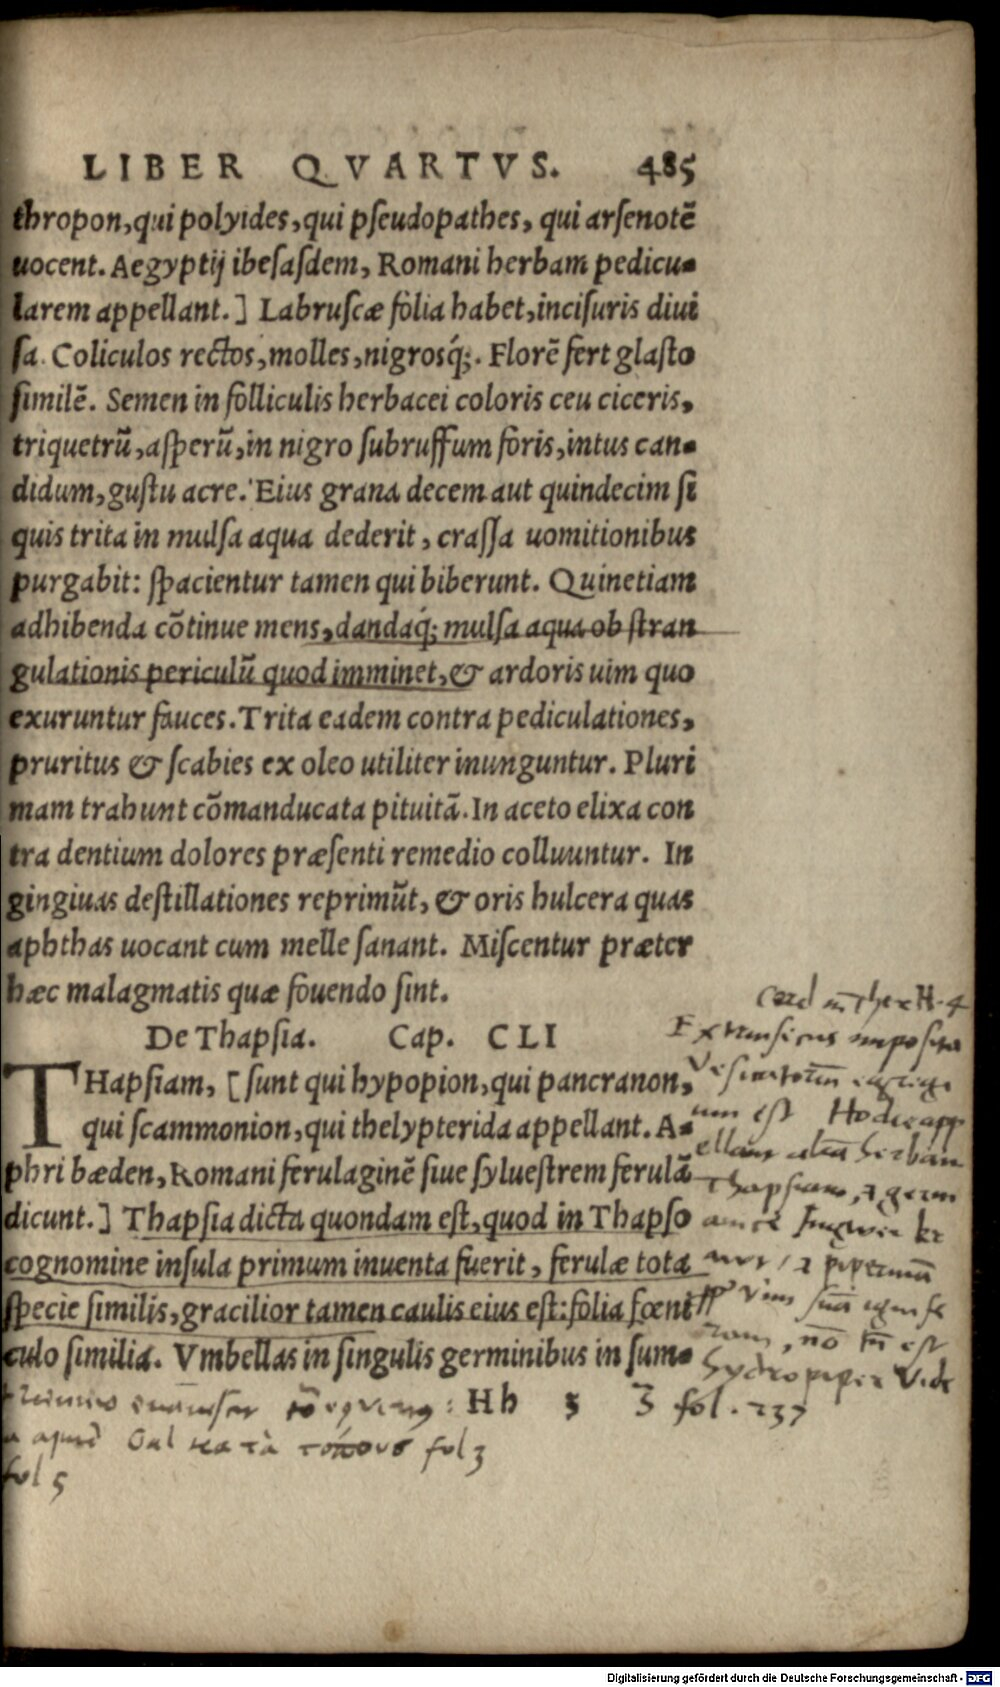 LIBER QVARTVS. 485
thropon, qui polyides, qui pſeudopathes, qui arſenotē
uocent. Aegyptij ibeſaſdem, Romani herbam pedicu-
larem appellant.] Labruſcæ folia habet, inciſuris diui
ſa. Coliculos rectos, molles, nigrosq́;. Florē fert glaſto
ſimilē. Semen in folliculis herbacei coloris ceu ciceris,
triquetrū, aſperū, in nigro ſubruffum foris, intus can-
didum, guſtu acre. Eius grana decem aut quindecim ſi
quis trita in mulſa aqua dederit, craſſa uomitionibus
purgabit: ſpacientur tamen qui biberunt. Quinetiam
adhibenda cōtinue mens, dandaq́; mulſa aqua ob ſtran
gulationis periculū quod imminet, & ardoris uim quo
exuruntur fauces. Trita eadem contra pediculationes,
pruritus & ſcabies ex oleo utiliter inunguntur. Pluri
mam trahunt cōmanducata pituitā. In aceto elixa con
tra dentium dolores præſenti remedio colluuntur. In
gingiuas deſtillationes reprimūt, & oris hulcera quas
aphthas uocant cum melle ſanant. Miſcentur præter
hæc malagmatis quæ fouendo ſint.
De Thapſia. Cap. CLI
THapſiam, [ſunt qui hypopion, qui pancranon,
qui ſcammonion, qui thelypterida appellant. A-
phri bæden, Romani ferulaginē ſiue ſylueſtrem ferulā
dicunt.] Thapſia dicta quondam eſt, quod in Thapſo
cognomine inſula primum inuenta fuerit, ferulæ tota
ſpecie ſimilis, gracilior tamen caulis eius eſt: folia fœni
culo ſimilia. Vmbellas in ſingulis germinibus in ſum-
Hb 3
imposita
est Hodie app
herbam
Thapsiam
nō est
hydropiper Vide
fol. 237
Gal κατὰ τόπους fol 3
fol 5
Digitalisierung gefördert durch die Deutsche Forschungsgemeinschaft - DFG